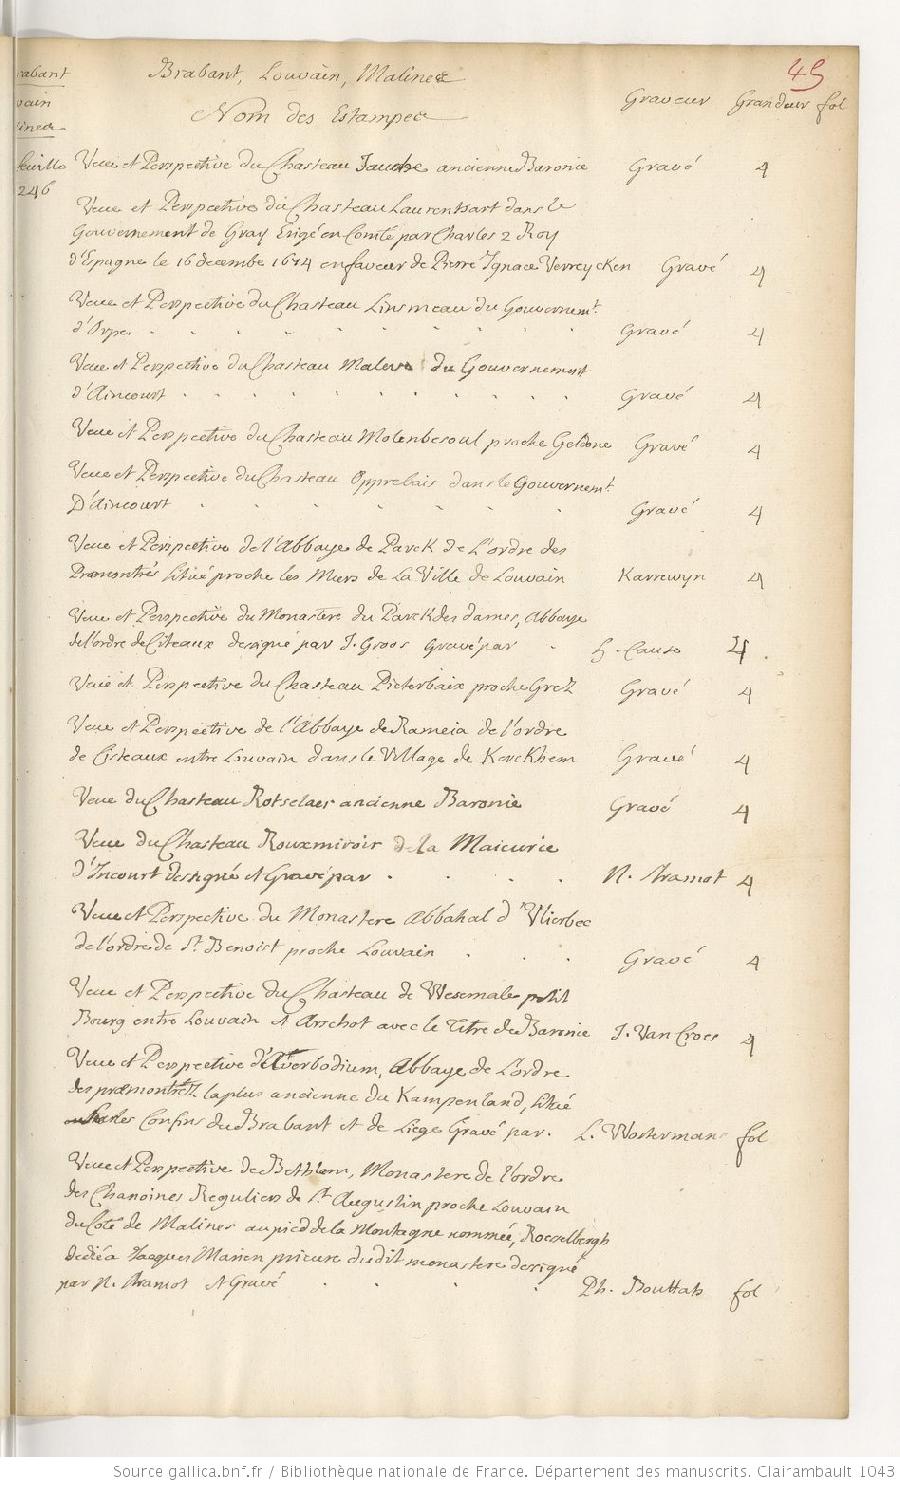 45
Brabant, Louvain, Malines
Nom des Estampes Graveur Grandeur fol
rabant
vain
lines
feuille
246
Veue et Perspective du Chasteau Jauche ancienne Baronie Gravé 4
Veue et Perspective du Chasteau Laurensart dans le
Gouvernement de Gray Erigé en Comté par Charles 2 Roy
d'Epagne le 16 decembe 1674 en faveur de Pierre Ignace Verreycken Gravé 4
Veue et Perspective du Chasteau Linsmeau du Gouvernemt.
d'Orpe. Gravé 4
Veue et Perspective du Chasteau Maleve du Gouvernement
d'Aincourt Gravé 4
Veue et Perspective du Chasteau Molenbesoul proche Geldone Gravé 4
Veue et Perspective du Chasteau Opprebais dans le Gouvernemt.
D'Aincourt Gravé 4
Veue et Perspective de l'Abbaye de Parck de L'ordre des
Premontrés Situé proche les Murs de La Ville de Louvain Karrewyn 4
Veue et Perspective du Monastere du Parck des dames, abbaye
de l'ordre de Citeaux designé par J. Groos Gravé par H. Causé 4.
Veue et Perspective du Chasteau Pieterbaix proche Gretz Gravé 4
Veue et Perspective de l'Abbaye de Rameia de l'ordre
de Cisteaux entre Louvain dans le Village de Kerckhem Gravé 4
Veue du Chasteau Rotselaer ancienne Baronie Gravé 4
Veue du Chasteau Rouxmiroir de la Maieurie
d'Incourt designé et Gravé par N. Aramot 4
Veue et Perspective du Monastere abbahal d'Vlierbec
de l'ordre de St. Benoist proche Louvain Gravé 4
Veue et Perspective du Chasteau de Wesemale petit
Bourg entre Louvain et Arschot avec le Titre de Baronie J. Van Croes 4
Veue et Perspective d'Averbodium, Abbaye de L'ordre
des præmontrez la plus ancienne du Kampenland, Situé
sur les Confins du Brabant et de Liege Gravé par. L. Vosterman fol
Veue et Perspective de Bethleem, Monastere de l'ordre
des Chanoines Reguliers de St. Augustin proche Louvain
du Coté de Malines au pied de la Montagne nommée, Roesselbergh
dediéa Jacques Marien prieur dudit monastere designé
par N. Aramot et Gravé Ph. Bouttats fol
Source gallica.bnf.fr / Bibliothèque nationale de France. Département des manuscrits. Clairambault 1043